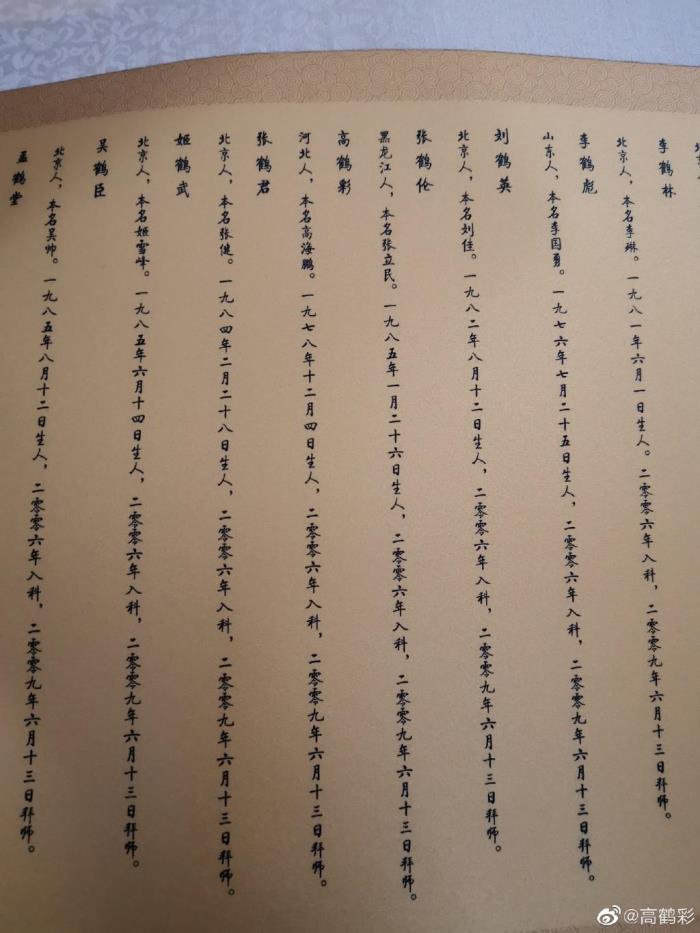 李鹤林
北京人，本名李琳。一九八一年六月一日生人。二零零六年入科，二零零九年六月十三日拜师。
李鹤彪
山东人，本名李国勇。一九七六年七月二十五日生人，二零零六年入科，二零零九年六月十三日拜师。
刘鹤英
北京人，本名刘佳。一九八二年八月十二日生人，二零零六年入科，二零零九年六月十三日拜师。
张鹤伦
黑龙江人，本名张立民。一九八五年一月二十六日生人，二零零六年入科，二零零九年六月十三日拜师。
高鹤彩
河北人，本名高海鹏。一九七八年十二月四日生人，二零零六年入科，二零零九年六月十三日拜师。
张鹤君
北京人，本名张健。一九八四年二月二十八日生人，二零零六年入科，二零零九年六月十三日拜师。
姬鹤武
北京人，本名姬雪峰。一九八五年六月十四日生人，二零零六年入科，二零零九年六月十三日拜师。
吴鹤臣
北京人，本名吴帅。一九八五年八月十二日生人，二零零六年入科，二零零九年六月十三日拜师。
孟鹤堂
@高鹤彩